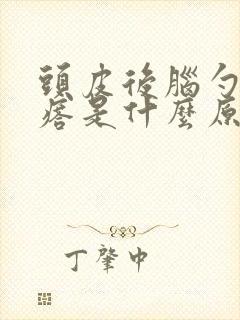 頭皮後腦勺
痞是什麼原
丁肇中